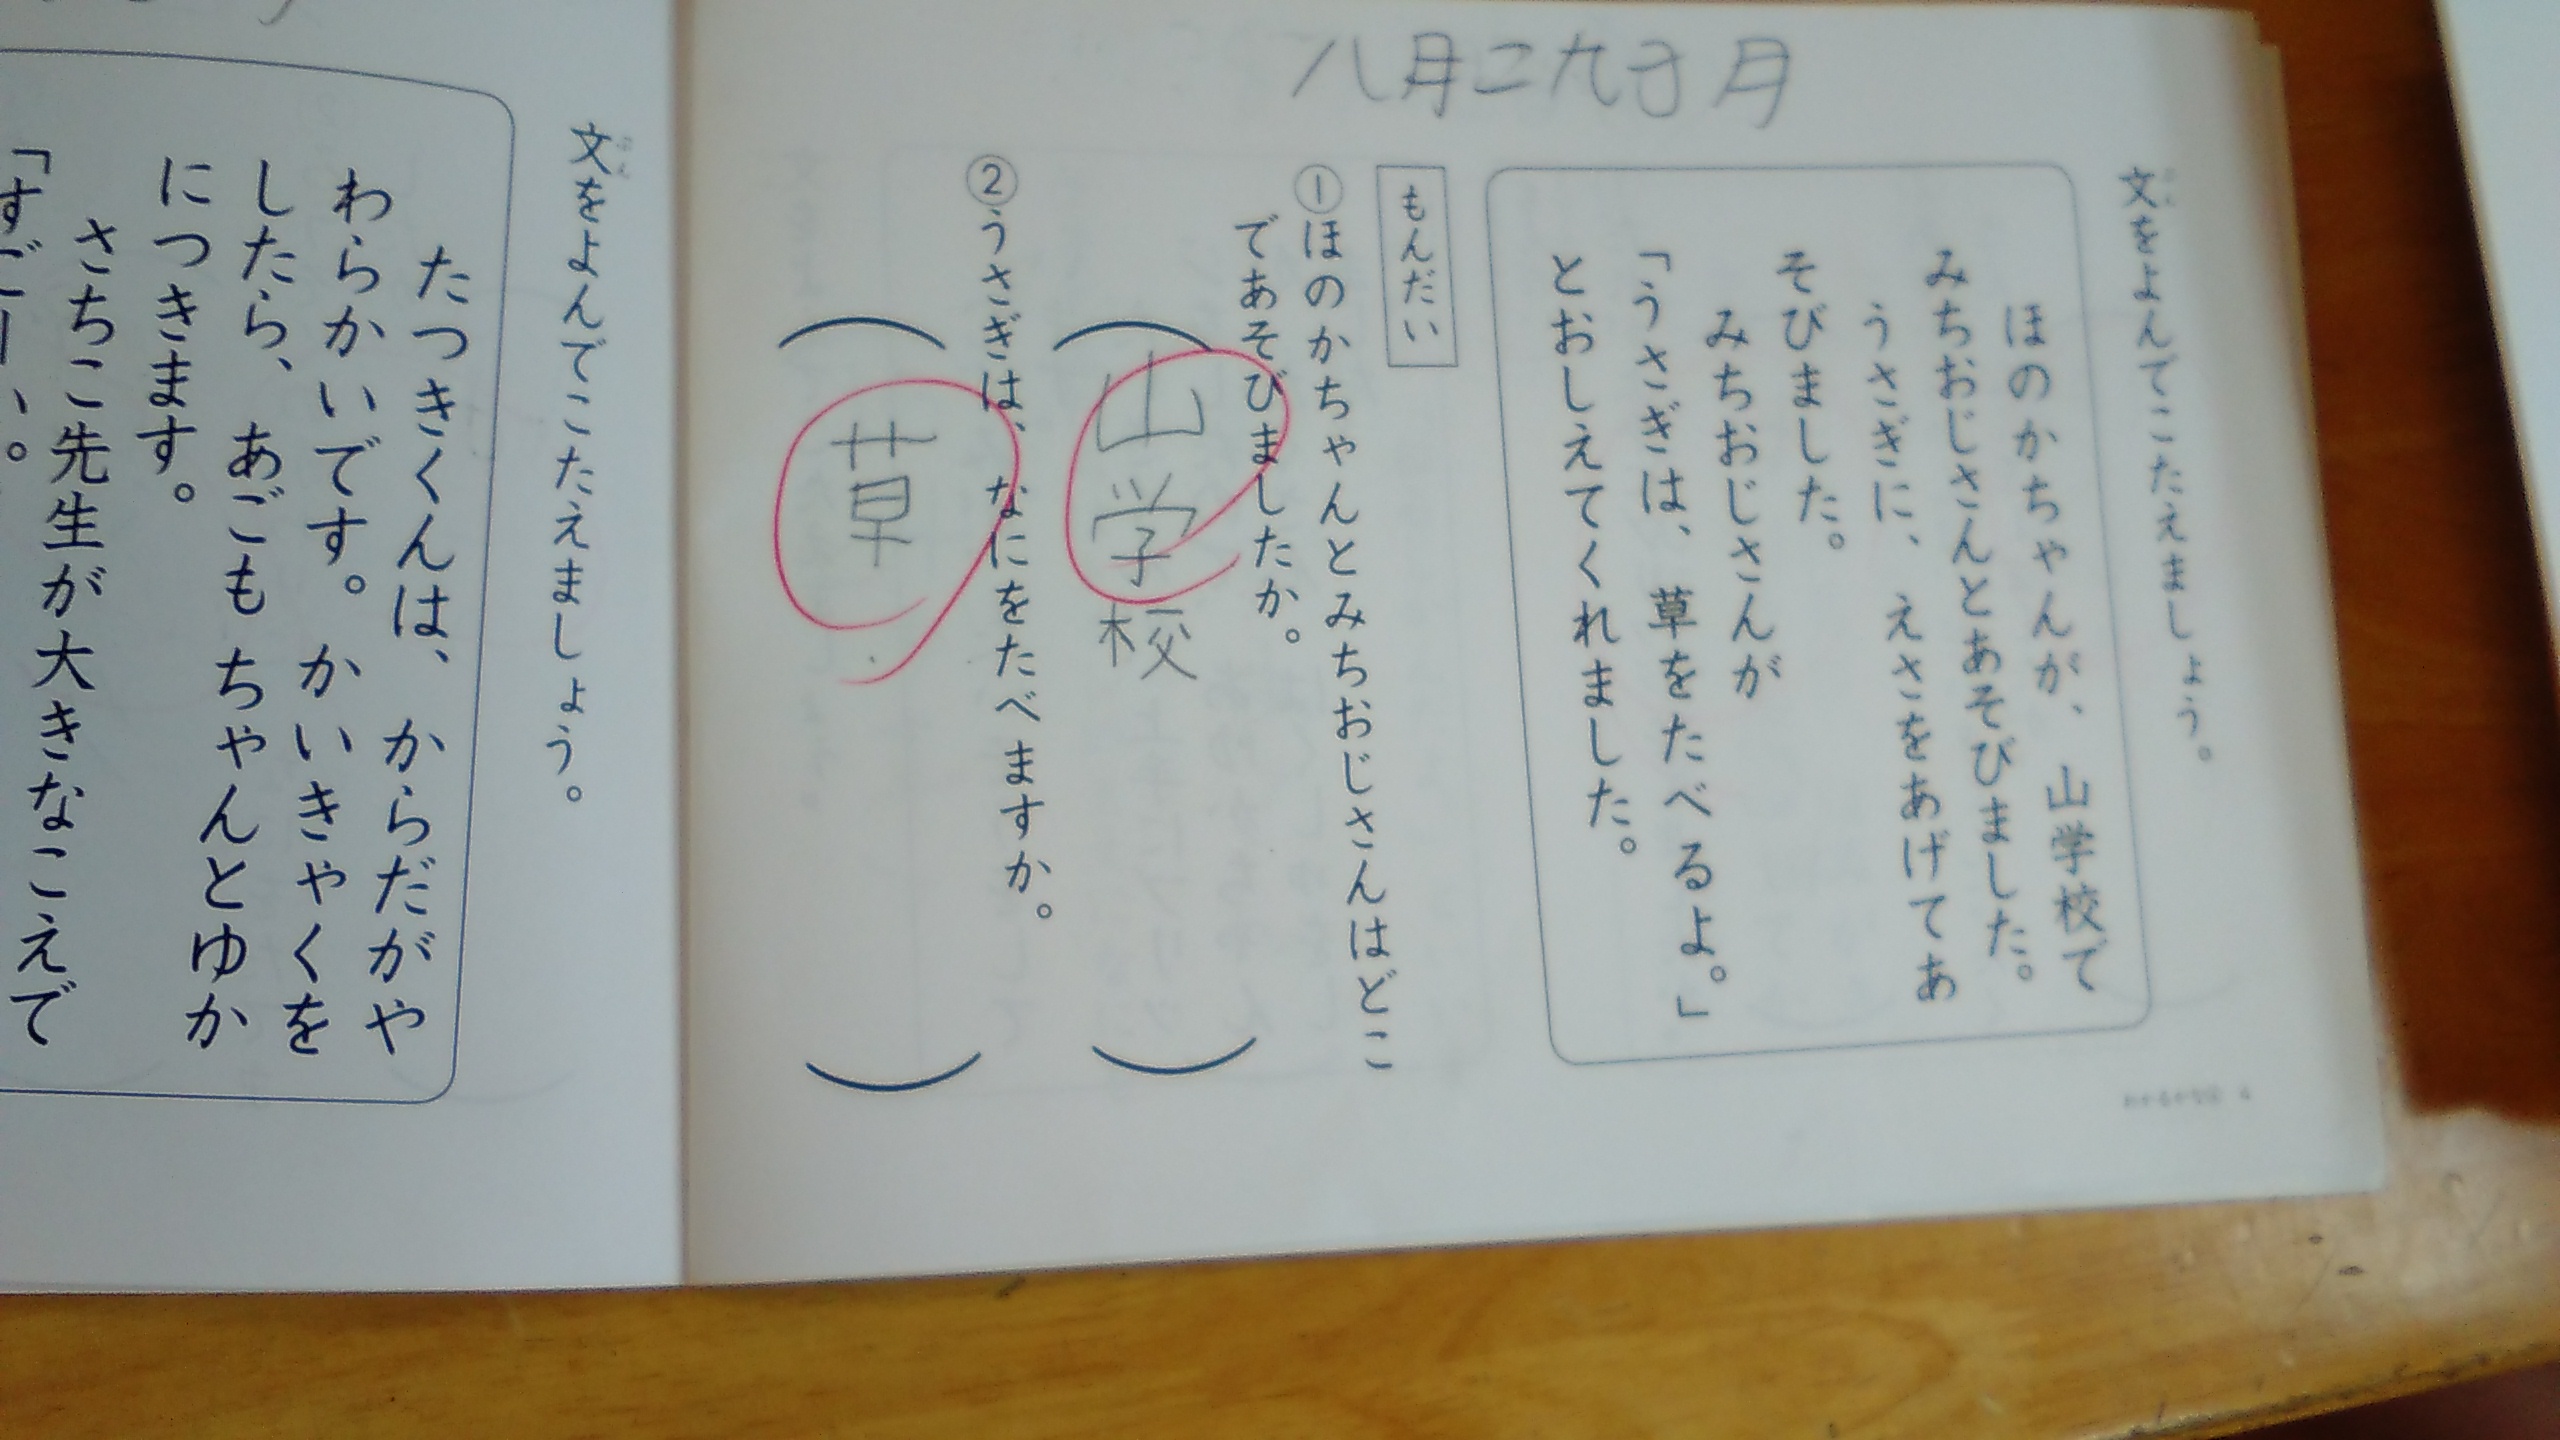 文をよんでこたえましょう。
ほのかちゃんが、山学校で
みちおじさんとあそびました。
うさぎに、えさをあげてあ
そびました。
みちおじさんが
「うさぎは、草をたべるよ。」
とおしえてくれました。
もんだい
①ほのかちゃんとみちおじさんはどこ
であそびましたか。
（山学校）
②うさぎは、なにをたべますか。
（草）
文をよんでこたえましょう。
たつきくんは、からだがや
わらかいです。かいきゃくを
したら、あごもちゃんとゆか
につきます。
さちこ先生が大きなこえで
「すごーい。